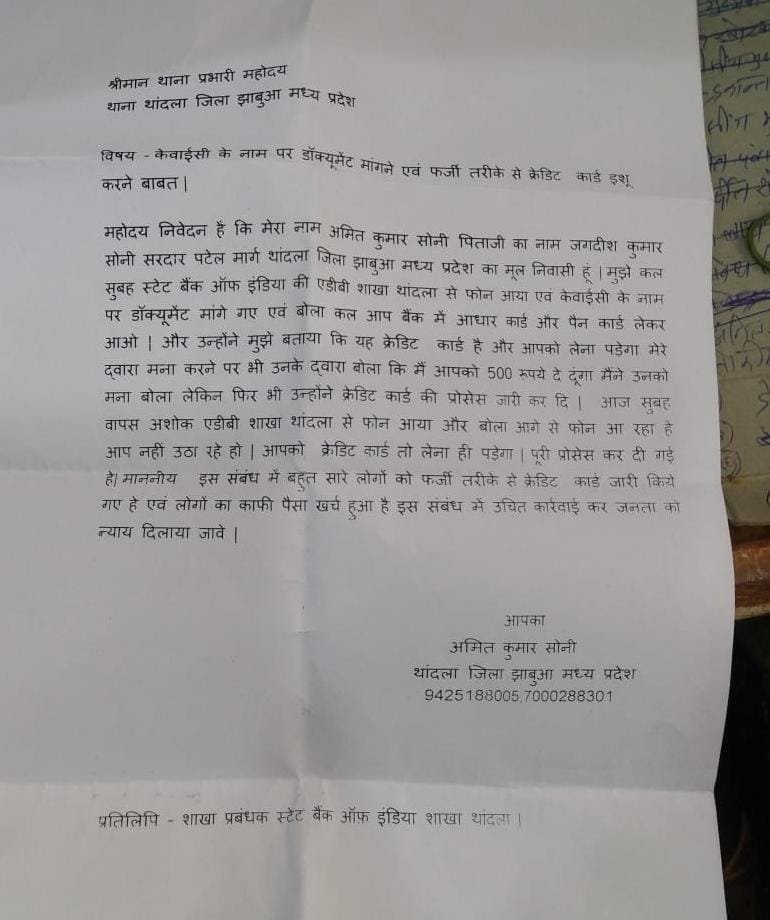 श्रीमान थाना प्रभारी महोदय
थाना थांदला जिला झाबुआ मध्य प्रदेश
विषय - केवाईसी के नाम पर डॉक्यूमेंट मांगने एवं फर्जी तरीके से क्रेडिट कार्ड इशू
करने बाबत |
महोदय निवेदन है कि मेरा नाम अमित कुमार सोनी पिताजी का नाम जगदीश कुमार
सोनी सरदार पटेल मार्ग थांदला जिला झाबुआ मध्य प्रदेश का मूल निवासी हूं | मुझे कल
सुबह स्टेट बैंक ऑफ इंडिया की एडीबी शाखा थांदला से फोन आया एवं केवाईसी के नाम
पर डॉक्यूमेंट मांगे गए एवं बोला कल आप बैंक में आधार कार्ड और पैन कार्ड लेकर
आओ | और उन्होंने मुझे बताया कि यह क्रेडिट कार्ड है और आपको लेना पड़ेगा मेरे
द्वारा मना करने पर भी उनके द्वारा बोला कि मैं आपको 500 रूपये दे दूंगा मैंने उनको
मना बोला लेकिन फिर भी उन्होंने क्रेडिट कार्ड की प्रोसेस जारी कर दि | आज सुबह
वापस अशोक एडीबी शाखा थांदला से फोन आया और बोला आगे से फोन आ रहा हे
आप नहीं उठा रहे हो | आपको क्रेडिट कार्ड तो लेना ही पड़ेगा | पूरी प्रोसेस कर दी गई
हे| माननीय इस संबंध में बहुत सारे लोगों को फर्जी तरीके से क्रेडिट कार्ड जारी किये
गए हे एवं लोगों का काफी पैसा खर्च हुआ है इस संबंध में उचित कार्रवाई कर जनता को
न्याय दिलाया जावे |
आपका
अमित कुमार सोनी
थांदला जिला झाबुआ मध्य प्रदेश
9425188005,7000288301
प्रतिलिपि - शाखा प्रबंधक स्टेट बैंक ऑफ़ इंडिया शाखा थांदला |